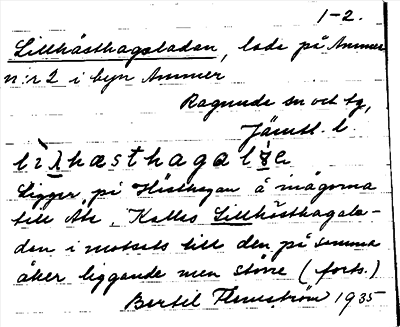 1-2.
Lillhästhagaladan, lada på Ammer
n:r 2 i byn Ammer
Ragunda sn och tg,
Jämtl. l.
Ligger på Hästhagan å inägorna
till Kallas Lillhästhagala-
dan i motsats till den på samma
åker liggande men större (forts.)
Bertil Flemström 1935